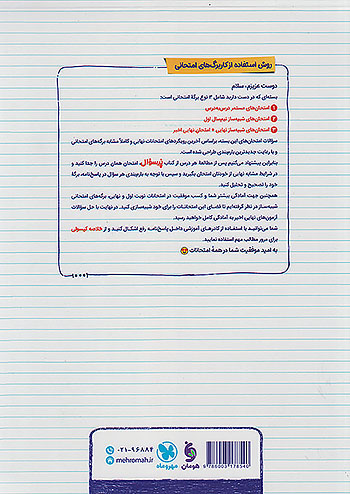 روش استفاده از کاربرگ‌های امتحانی
دوست عزیزم، سلام
بسته‌ای که در دست دارید شامل ۳ نوع برگهٔ امتحانی است:
۱ امتحان‌های مستمر درس‌به‌درس
۲ امتحان‌های شبیه‌ساز نیم‌سال اول
۳ امتحان‌های شبیه‌ساز نهایی + امتحان نهایی اخیر
سؤالات امتحان‌های این بسته، براساس آخرین رویکردهای امتحانات نهایی و کاملاً مشابه برگه‌های امتحانی
و با رعایت جدیدترین بارم‌بندی طراحی شده است.
بنابراین پیشنهاد می‌کنیم پس از مطالعهٔ هر درس از کتاب پُرسؤال، امتحان همان درس را جدا کنید و
در شرایط مشابه نهایی از خودتان امتحان بگیرید و سپس با توجه به بارم‌بندی هر سؤال در پاسخ‌نامه، برگهٔ
خود را تصحیح و تحلیل کنید.
همچنین جهت آمادگی بیشتر شما و کسب موفقیت در امتحانات نوبت اول و نهایی، برگه‌های امتحانی
شبیه‌ساز در نظر گرفته‌ایم تا فضای این امتحانات را برای خود شبیه‌سازی کنید. در نهایت با حل سؤالات
آزمون‌های نهایی اخیر به آمادگی کامل خواهید رسید.
شما می‌توانید با استفاده از کادرهای آموزشی داخل پاسخ‌نامه رفع اشکال کنید و از خلاصه کپسولی
برای مرور مطالب مهم استفاده نمایید.
به امید موفقیت شما در همهٔ امتحانات
۰۲۱-۹۶۸۸۴
mehromah.ir
مهروماه
هومان
9 786003 178540